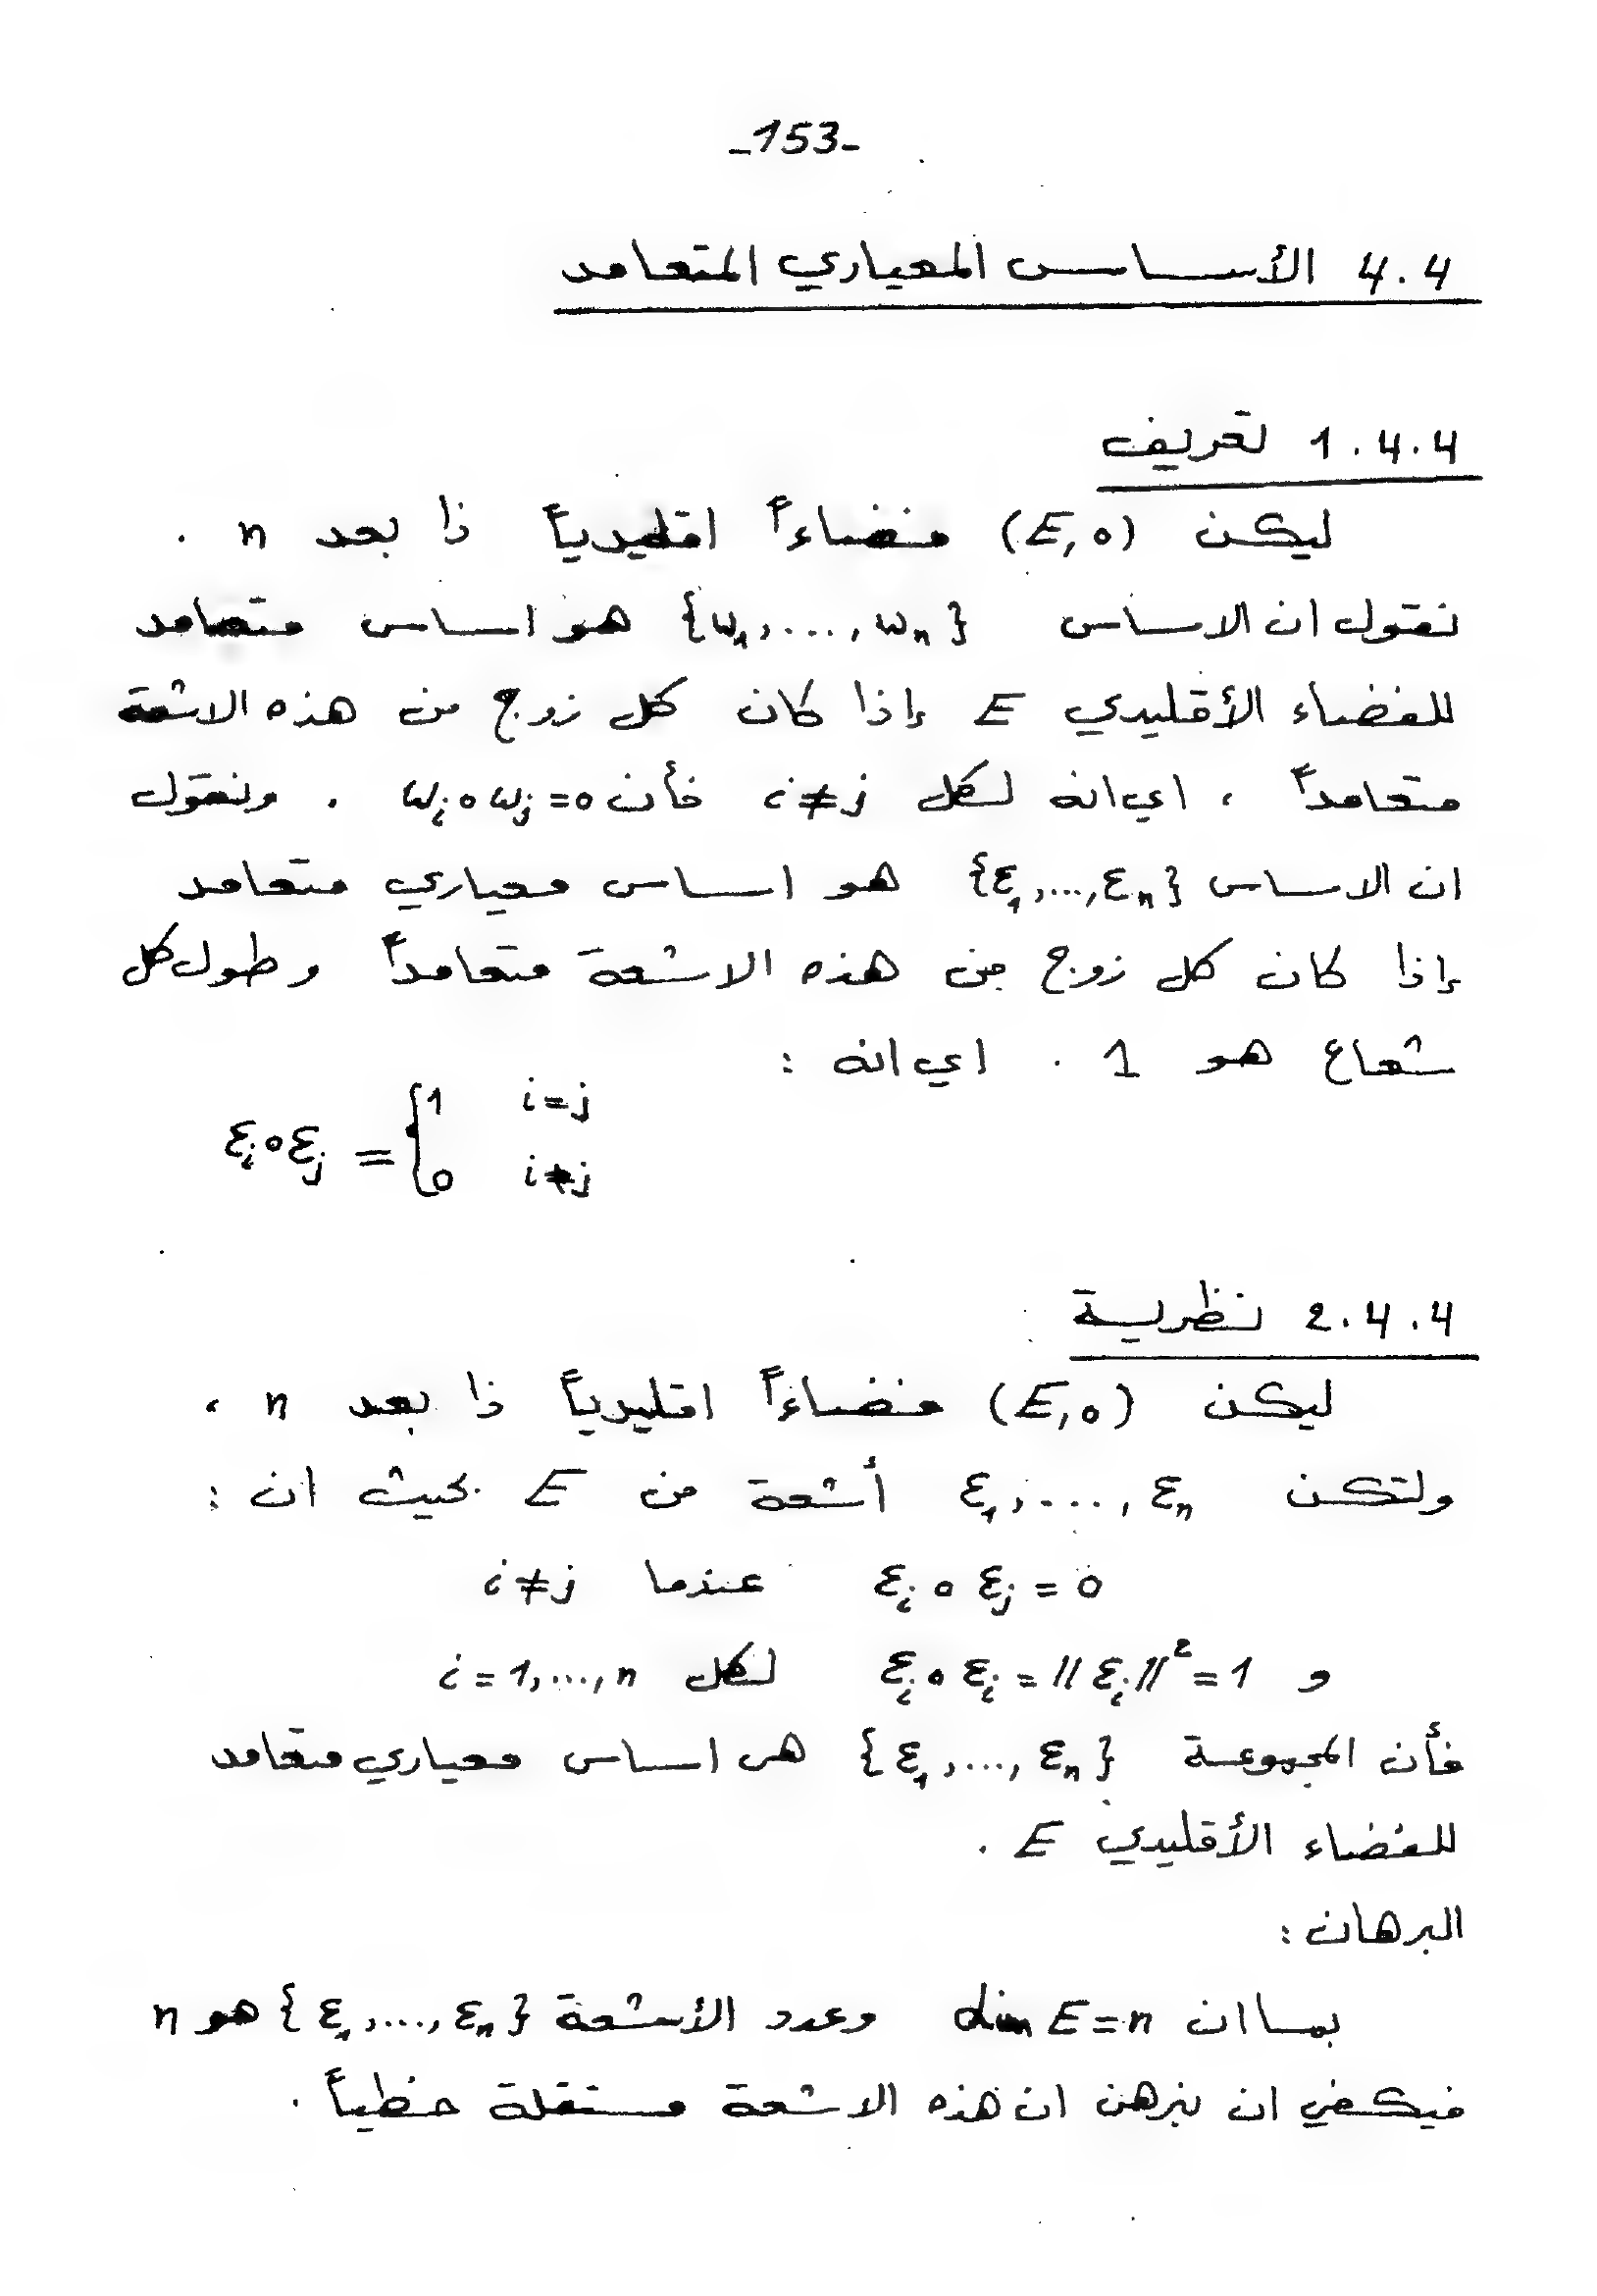 -153-
4.4 الأساس المعياري المتعامد
1.4.4 تعريف
ليكن (E,o) فضاءاً اقليدياً ذا بعد n .
نقول ان الاساس {w₁,...,wₙ} هو اساس متعامد
للفضاء الأقليدي E إذا كان كل زوج من هذه الاشعة
متعامداً ، اي انه لكل i≠j فأن wᵢ o wⱼ = 0 . ونقول
ان الاساس {ε₁,...,εₙ} هو اساس معياري متعامد
إذا كان كل زوج من هذه الاشعة متعامداً وطول كل
شعاع هو 1 . اي انه :
εᵢ o εⱼ = { 1 i=j
0 i≠j
2.4.4 نظرية
ليكن (E,o) فضاءاً اقليدياً ذا بعد n ،
ولتكن ε₁,...,εₙ أشعة من E بحيث ان :
εᵢ o εⱼ = 0 عندما i≠j
و εᵢ o εᵢ = ‖εᵢ‖² = 1 لكل i=1,...,n
فأن المجموعة {ε₁,...,εₙ} هي اساس معياري متعامد
للفضاء الأقليدي E .
البرهان :
بما ان dim E=n وعدد الأشعة {ε₁,...,εₙ} هو n
فيكفي ان نبرهن ان هذه الاشعة مستقلة خطياً .